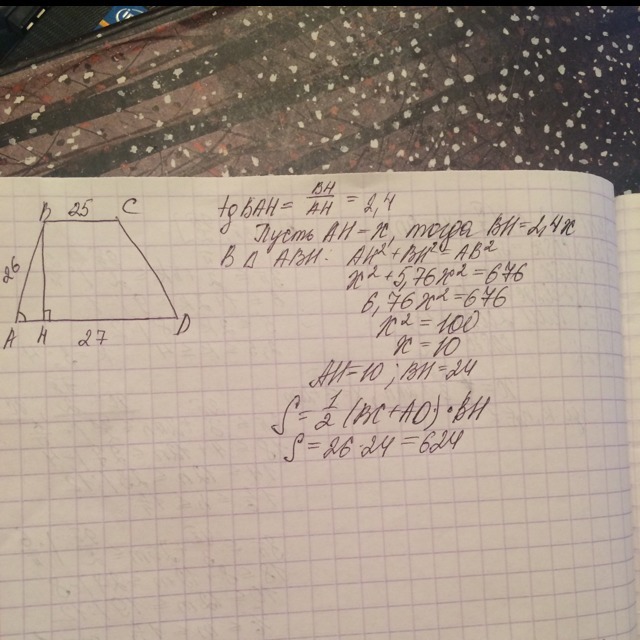 B 25 C
26
A H 27 D
tg BAH = BH/AH = 2,4
Пусть AH = x, тогда BH = 2,4x
В Δ ABH: AH² + BH² = AB²
x² + 5,76x² = 676
6,76x² = 676
x² = 100
x = 10
AH = 10 ; BH = 24
S = 1/2 (BC + AD) · BH
S = 26 · 24 = 624